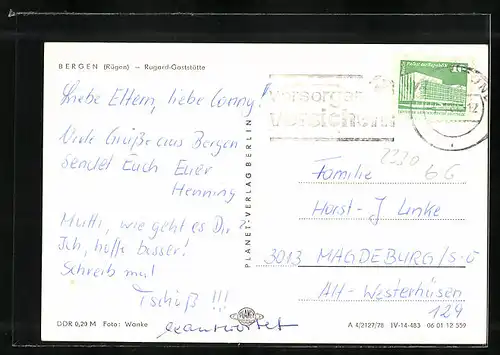 BERGEN (Rügen) — Rugard-Gaststätte
Liebe Eltern, liebe Conny!
Viele Grüße aus Bergen
sendet Euch Euer
Henning
Mutti, wie geht es Dir?
Ich, hoffe besser!
Schreib mal
Tschüß!!!
beantwortet
DDR 0,20 M Foto: Wanke
PLANET-VERLAG BERLIN
PLANET
vorsorgen
versichern
Palast der Republik
10
2220
Familie 6G
Horst-J Linke
3013 MAGDEBURG/S-O
Alt-Westerhüsen
124
A 4/2127/78 IV-14-483 06 01 12 559